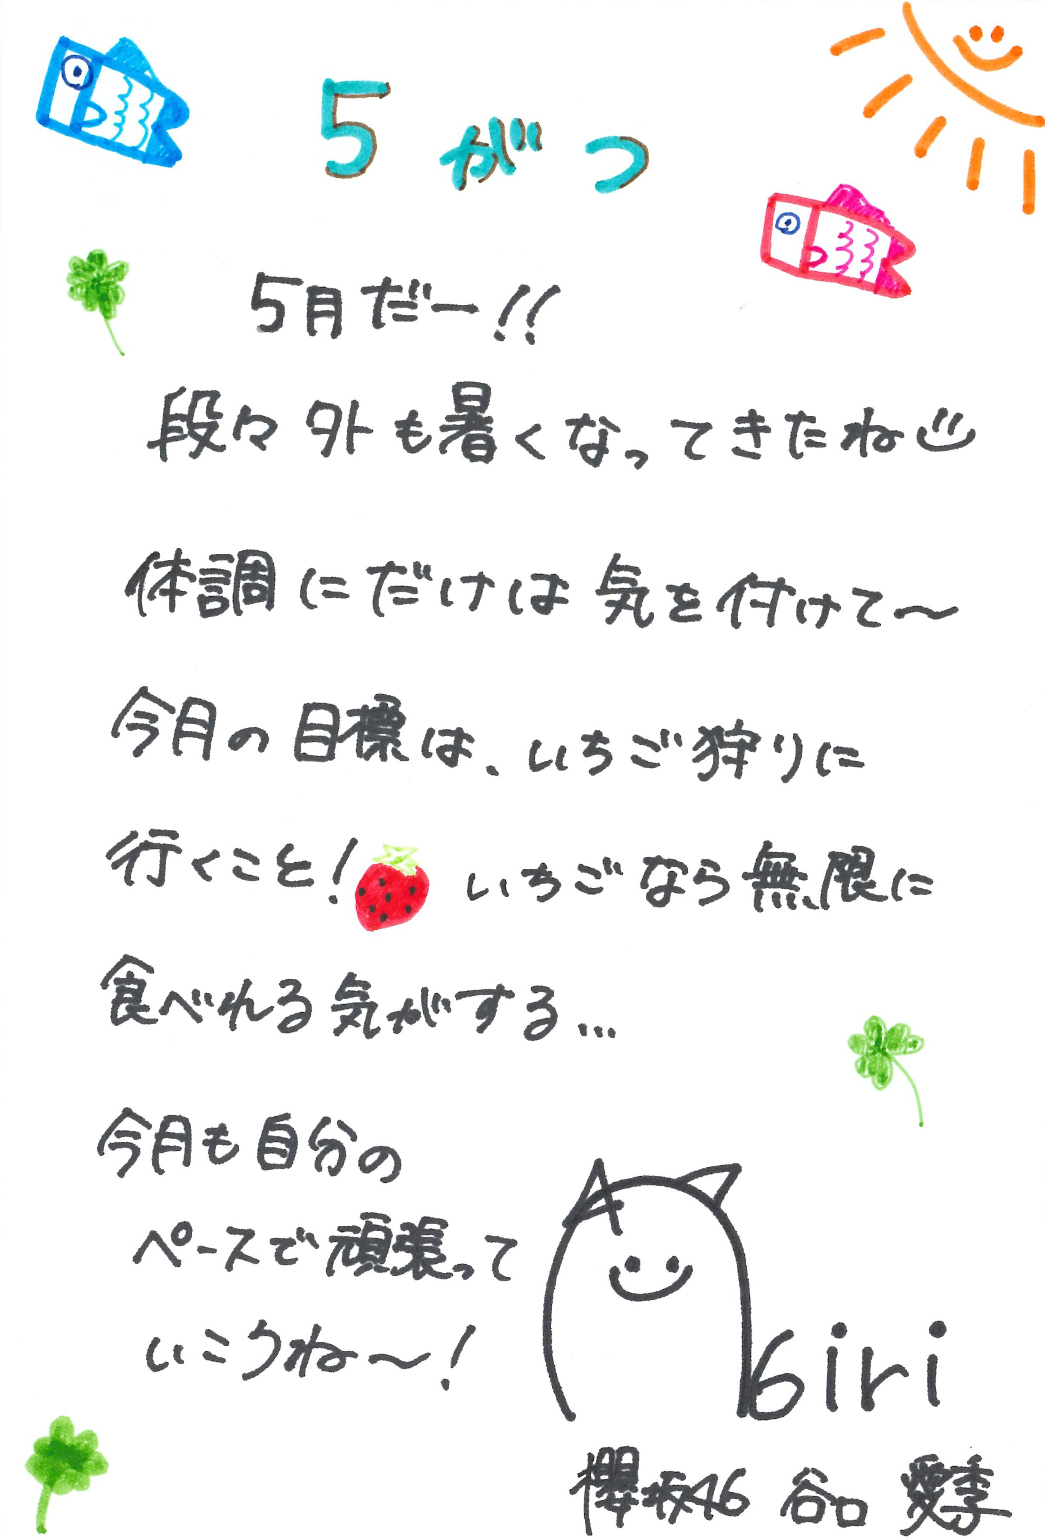 5がつ
5月だー!!
段々外も暑くなってきたね
体調にだけは気を付けて〜
今月の目標は、いちご狩りに
行くこと! いちごなら無限に
食べれる気がする...
今月も自分の
ペースで頑張って
いこうね〜!
Airi
櫻坂46 谷口 愛季